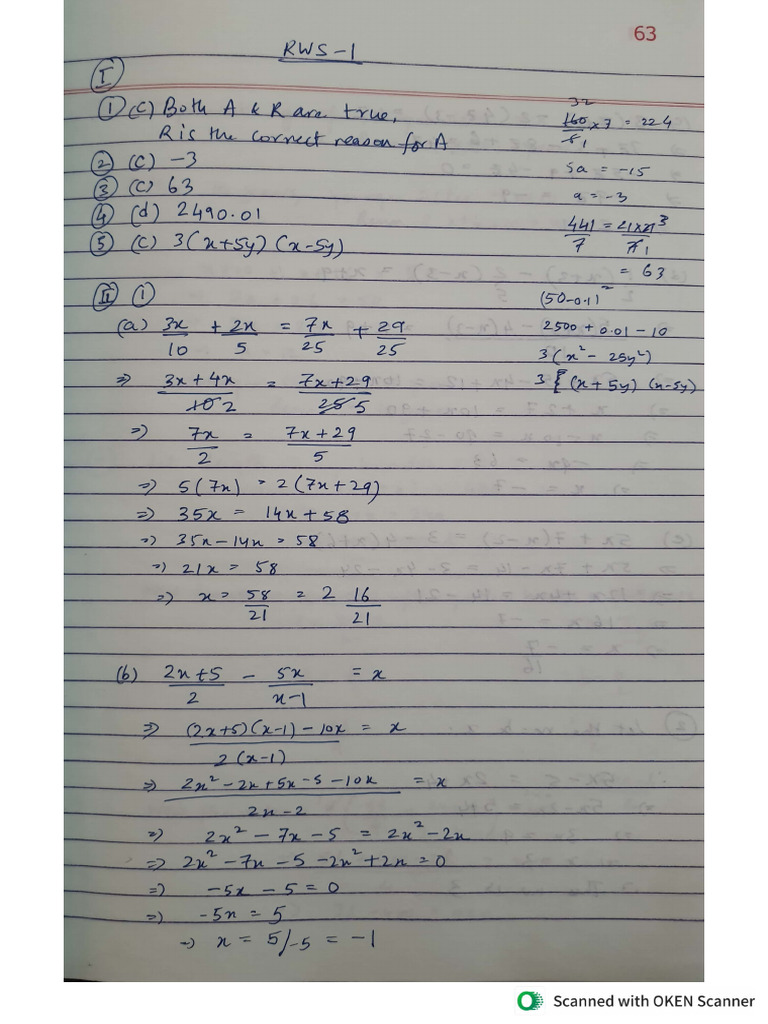 63
RWS-1
I
① (c) Both A & R are true,
R is the correct reason for A
② (c) -3
③ (c) 63
④ (d) 2490.01
⑤ (c) 3(x+5y)(x-5y)
32
160/5 1 x 7 = 224
5a = -15
a = -3
441/7 = 21x21 3/7 1
= 63
(50-0.1)²
2500 + 0.01 - 10
3(x² - 25y²)
3{(x+5y)(x-5y)
II ①
(a) 3x/10 + 2x/5 = 7x/25 + 29/25
=> 3x+4x/10 2 = 7x+29/25 5
=> 7x/2 = 7x+29/5
=> 5(7x) = 2(7x+29)
=> 35x = 14x+58
=> 35x-14x = 58
=> 21x = 58
=> x = 58/21 = 2 16/21
(b) 2x+5/2 - 5x/x-1 = x
=> (2x+5)(x-1)-10x/2(x-1) = x
=> 2x²-2x+5x-5-10x/2x-2 = x
=> 2x² - 7x - 5 = 2x² - 2x
=> 2x² - 7x - 5 - 2x² + 2x = 0
=> -5x - 5 = 0
=> -5x = 5
=> x = 5/-5 = -1
Scanned with OKEN Scanner